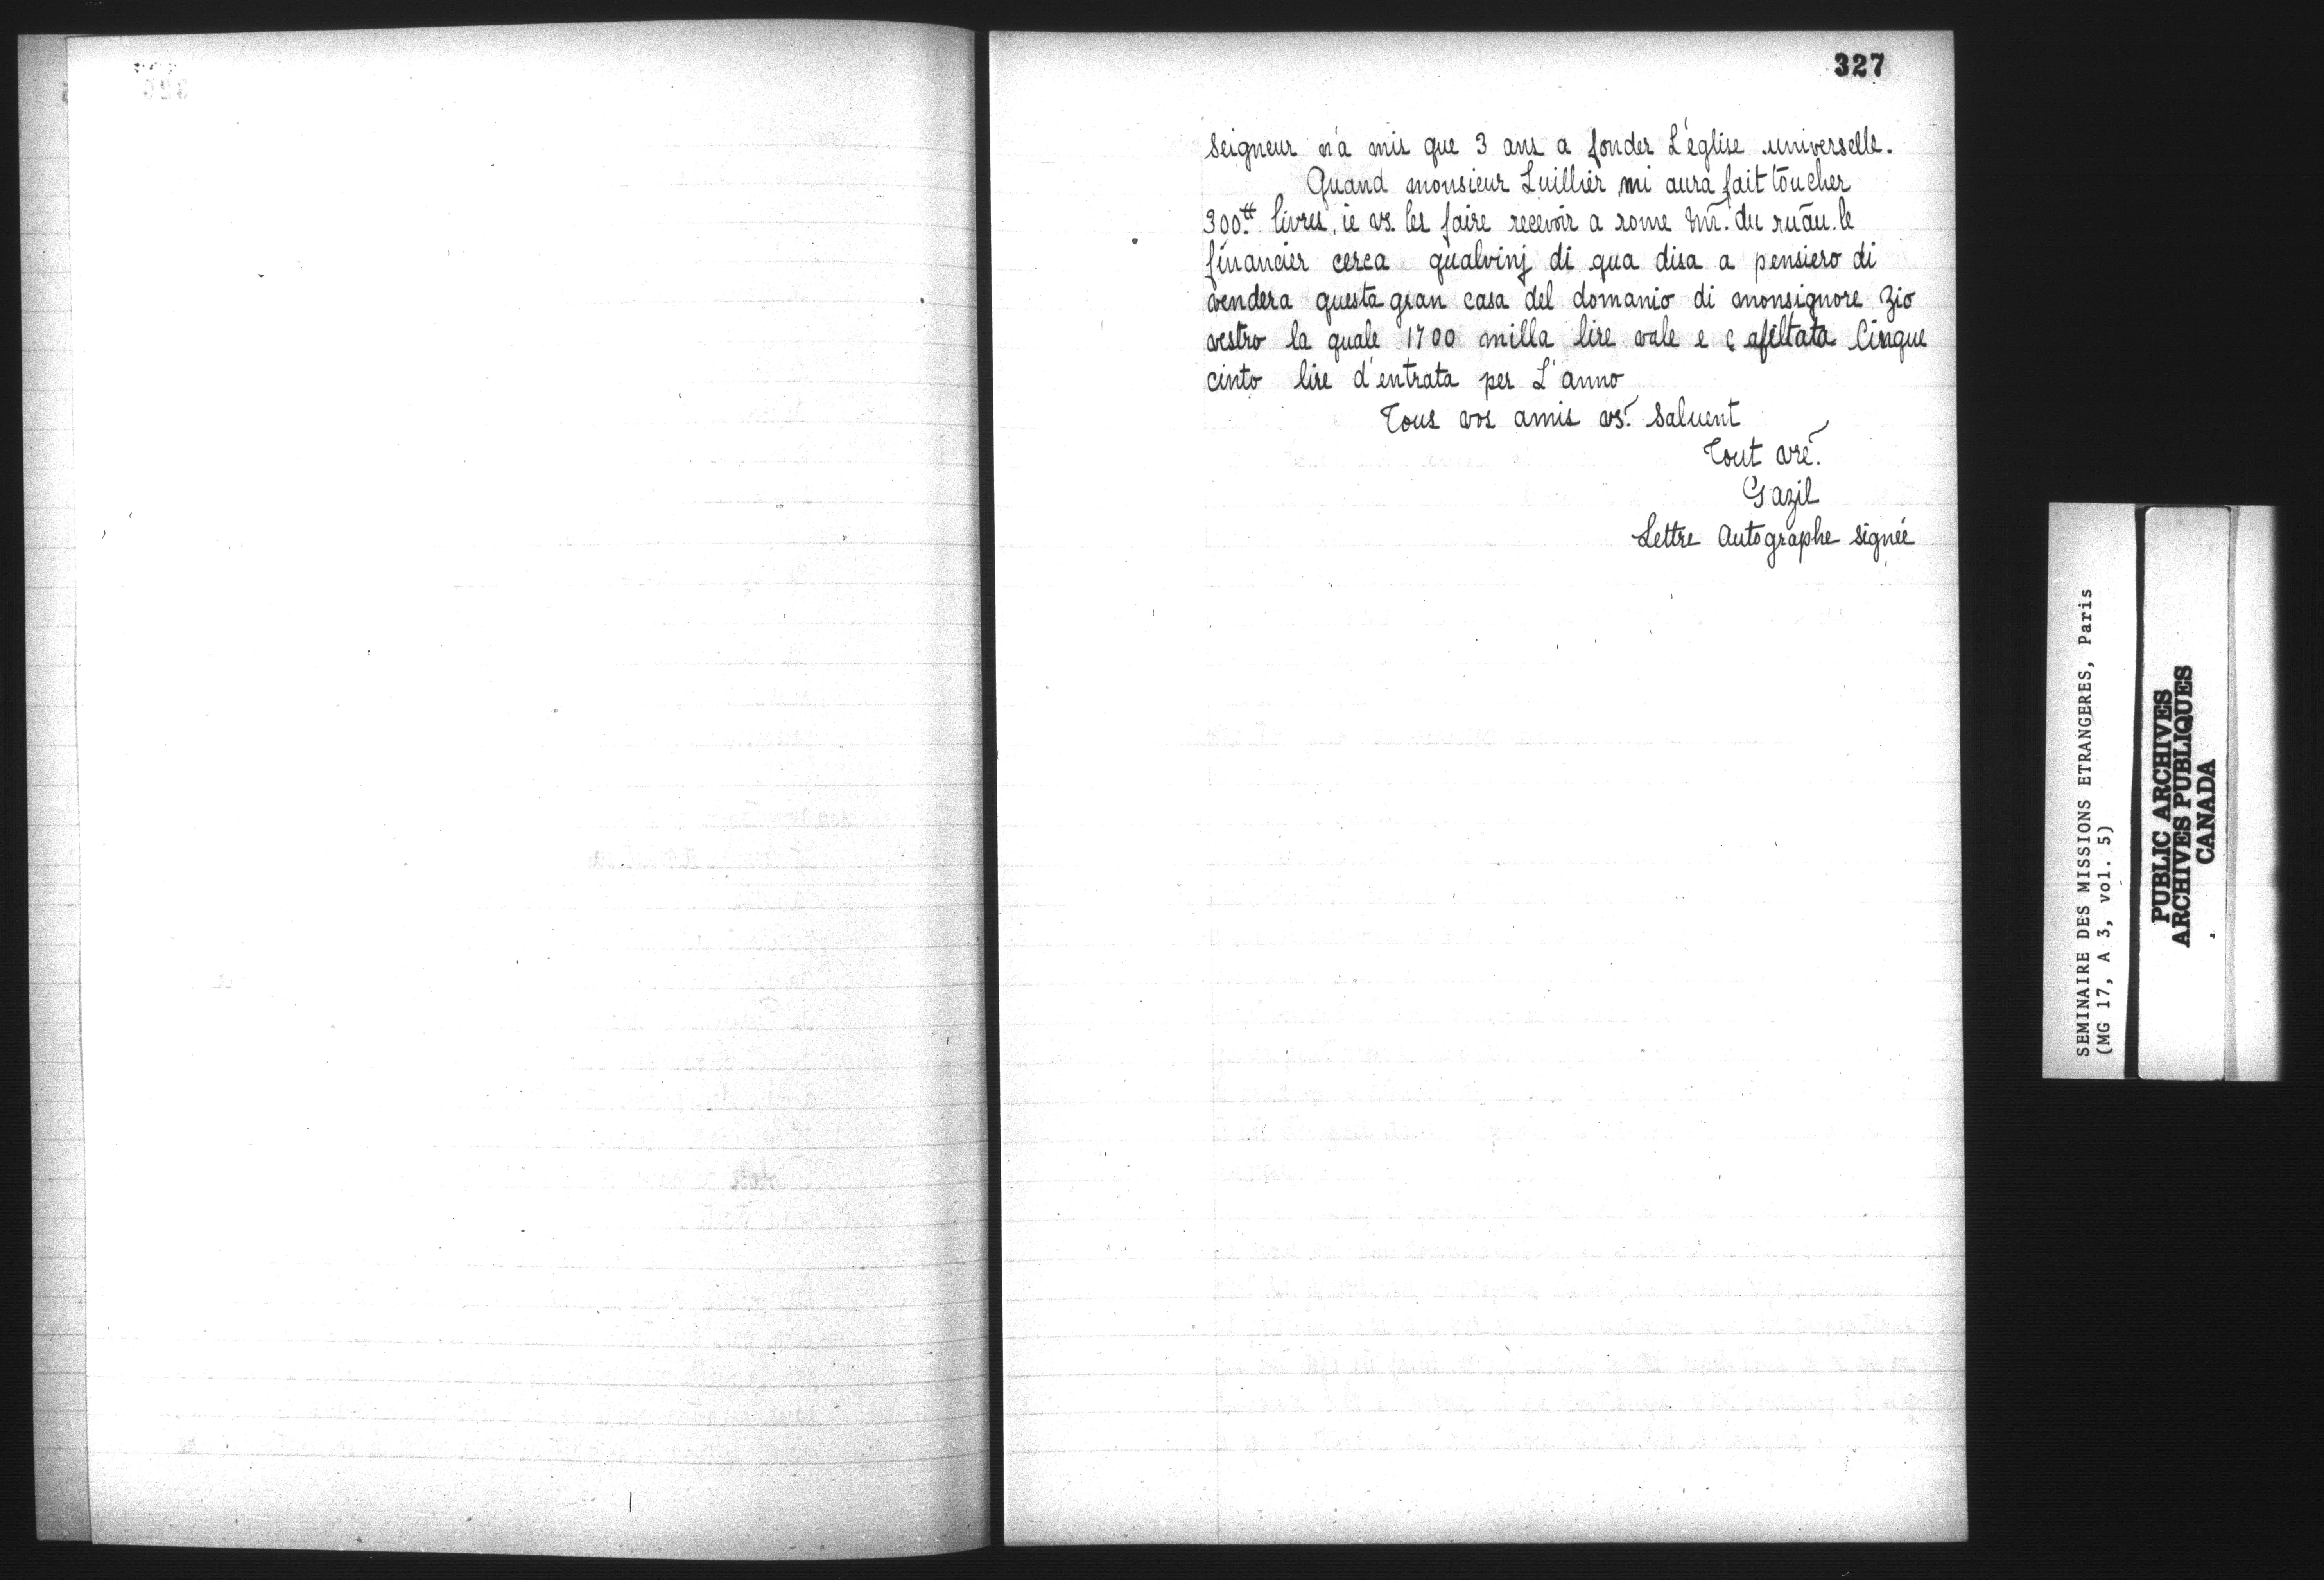 327
Seigneur n'a mis que 3 ans a fonder L'église universelle.
Quand monsieur Luillier mi aura fait toucher
300.tt livres, ie vs. les faire recevoir a rome Mr. du ruau. le
financier cerca qualvinj di qua disa a pensiero di
vendera questa gran casa del domanio di monsignore Zio
vestro la quale 1700 milla lire vale e ç afiltata Cinque
cinto lire d'entrata per L'anno
Tous vos amis vs. Saluent
Tout vre.
Gazil
Lettre Autographe signée
SEMINAIRE DES MISSIONS ETRANGERES, Paris
(MG 17, A 3, vol. 5)
PUBLIC ARCHIVES
ARCHIVES PUBLIQUES
CANADA